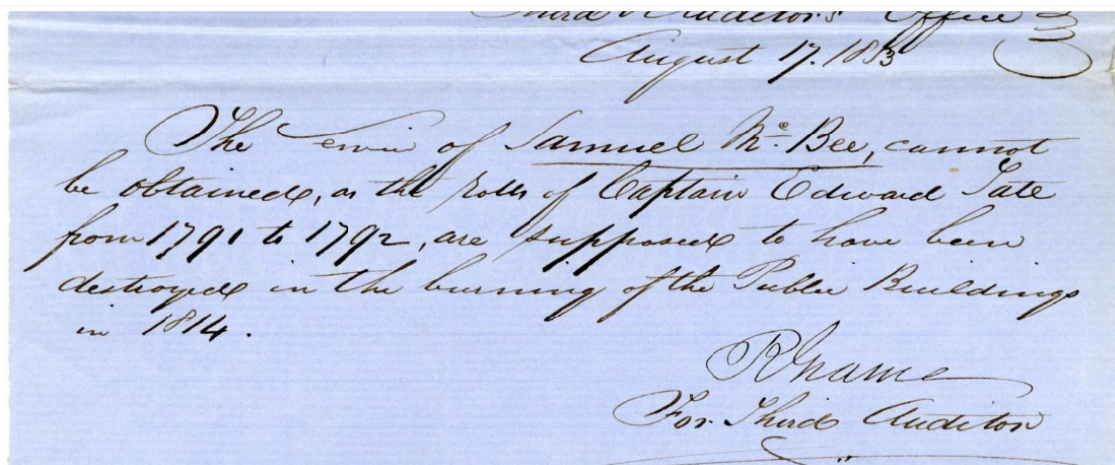 Third Auditor's Office
August 17. 1853
The service of Samuel McBee, cannot
be obtained, as the rolls of Captain Edward Tate
from 1791 to 1792, are supposed to have been
destroyed in the burning of the Public Buildings
in 1814.
For Third Auditor